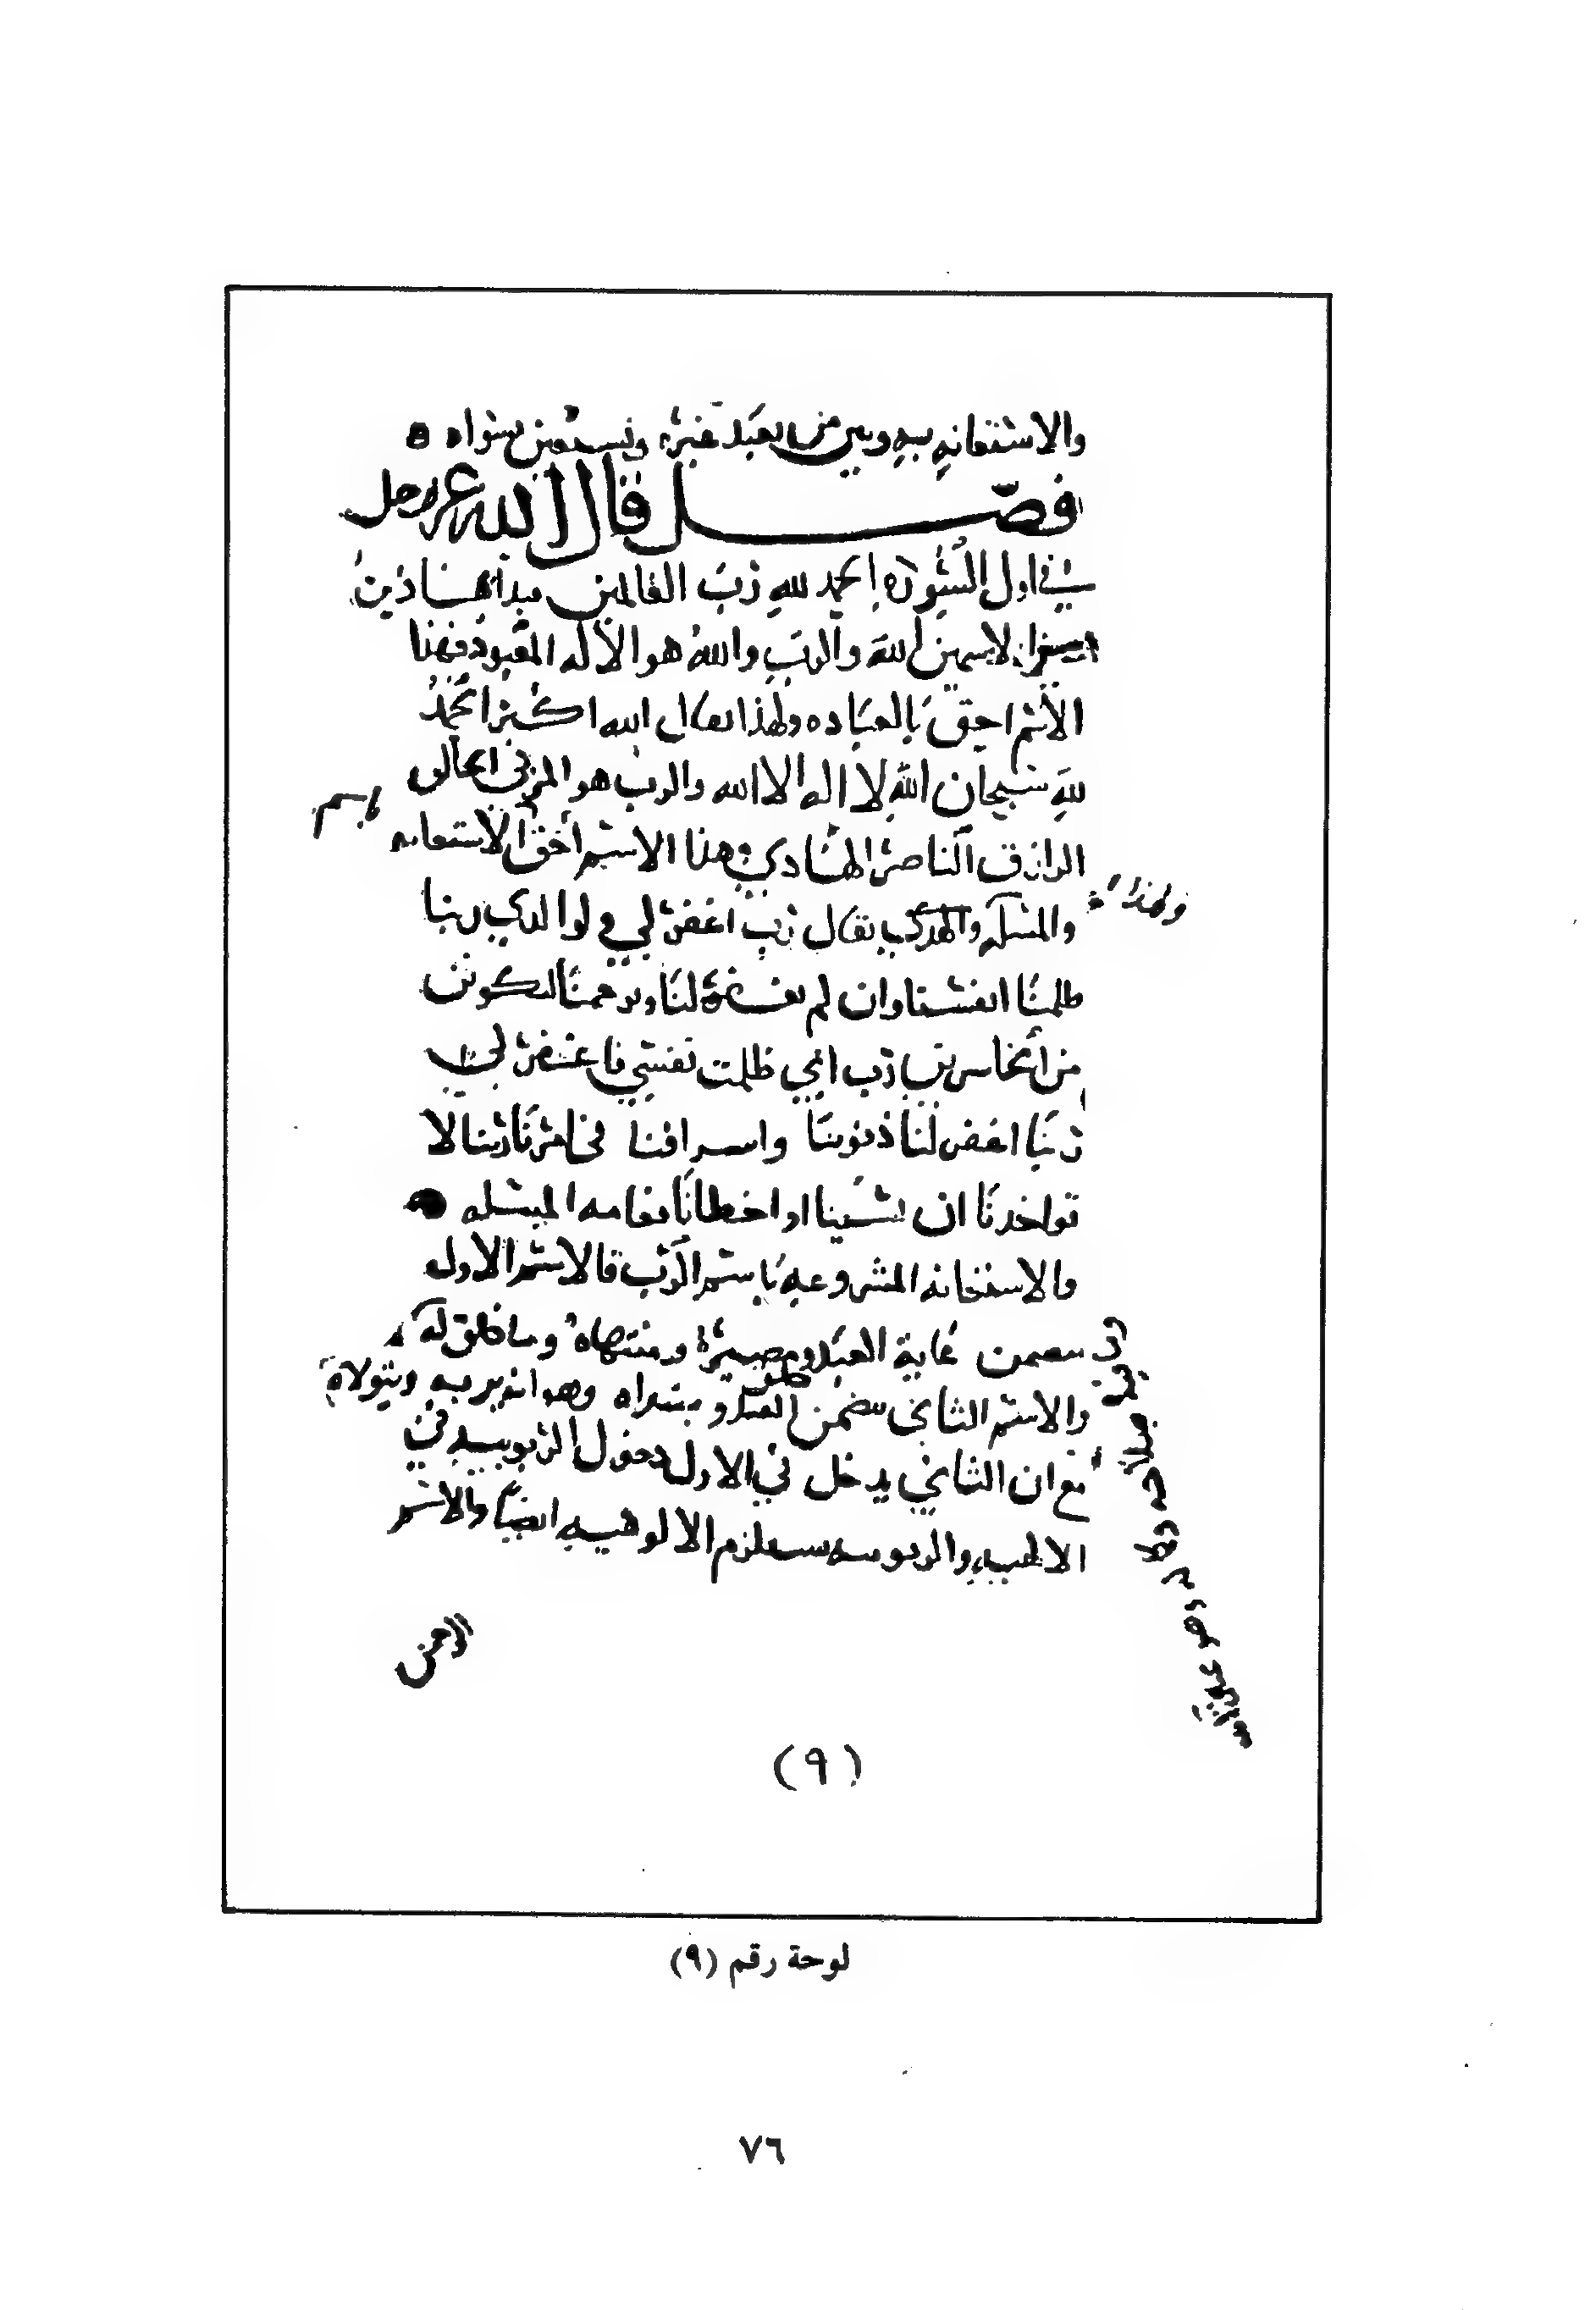 والاستعانه به وبين من يعبد غيره ويستعين بسواه
فصل قال الله عز وجل
في اول السوره الحمد لله رب العالمين فبدأ بهاذين
الاسمين الله والرب والله هو الاله المعبود فهذا
الاسم احق بالعباده ولهذا يقال الله اكبر الحمد
لله سبحان الله لا اله الا الله والرب هو المربي الخالق
الرازق الناصر الهادي وهذا الاسم أحق الاستعانه
باسم
والمسله ولهذا يقال رب اغفر لي ولوالدي ربنا
ولهذا
ظلمنا انفسنا وان لم تغفر لنا وترحمنا لنكونن
من الخاسرين رب اني ظلمت نفسي فاغفر لي
ربنا اغفر لنا ذنوبنا واسرافنا في امرنا ربنا لا
تواخدنا ان نسينا او اخطانا فعامه المسله
والاستعانه المشروعه باسم الرب فالاسم الاول
يتضمن غاية العبد ومصيره ومنتهاه وما خلق له
والاسم الثاني يتضمن خلق العبد ومبتداه وهو انه يربه ويتولاه
مع ان الثاني يدخل في الاول دخول الربوبيه في
الالهيه والربوبيه تستلزم الالوهيه ايضا والاسم
الرحمن
(٩)
لوحة رقم (٩)
٧٦